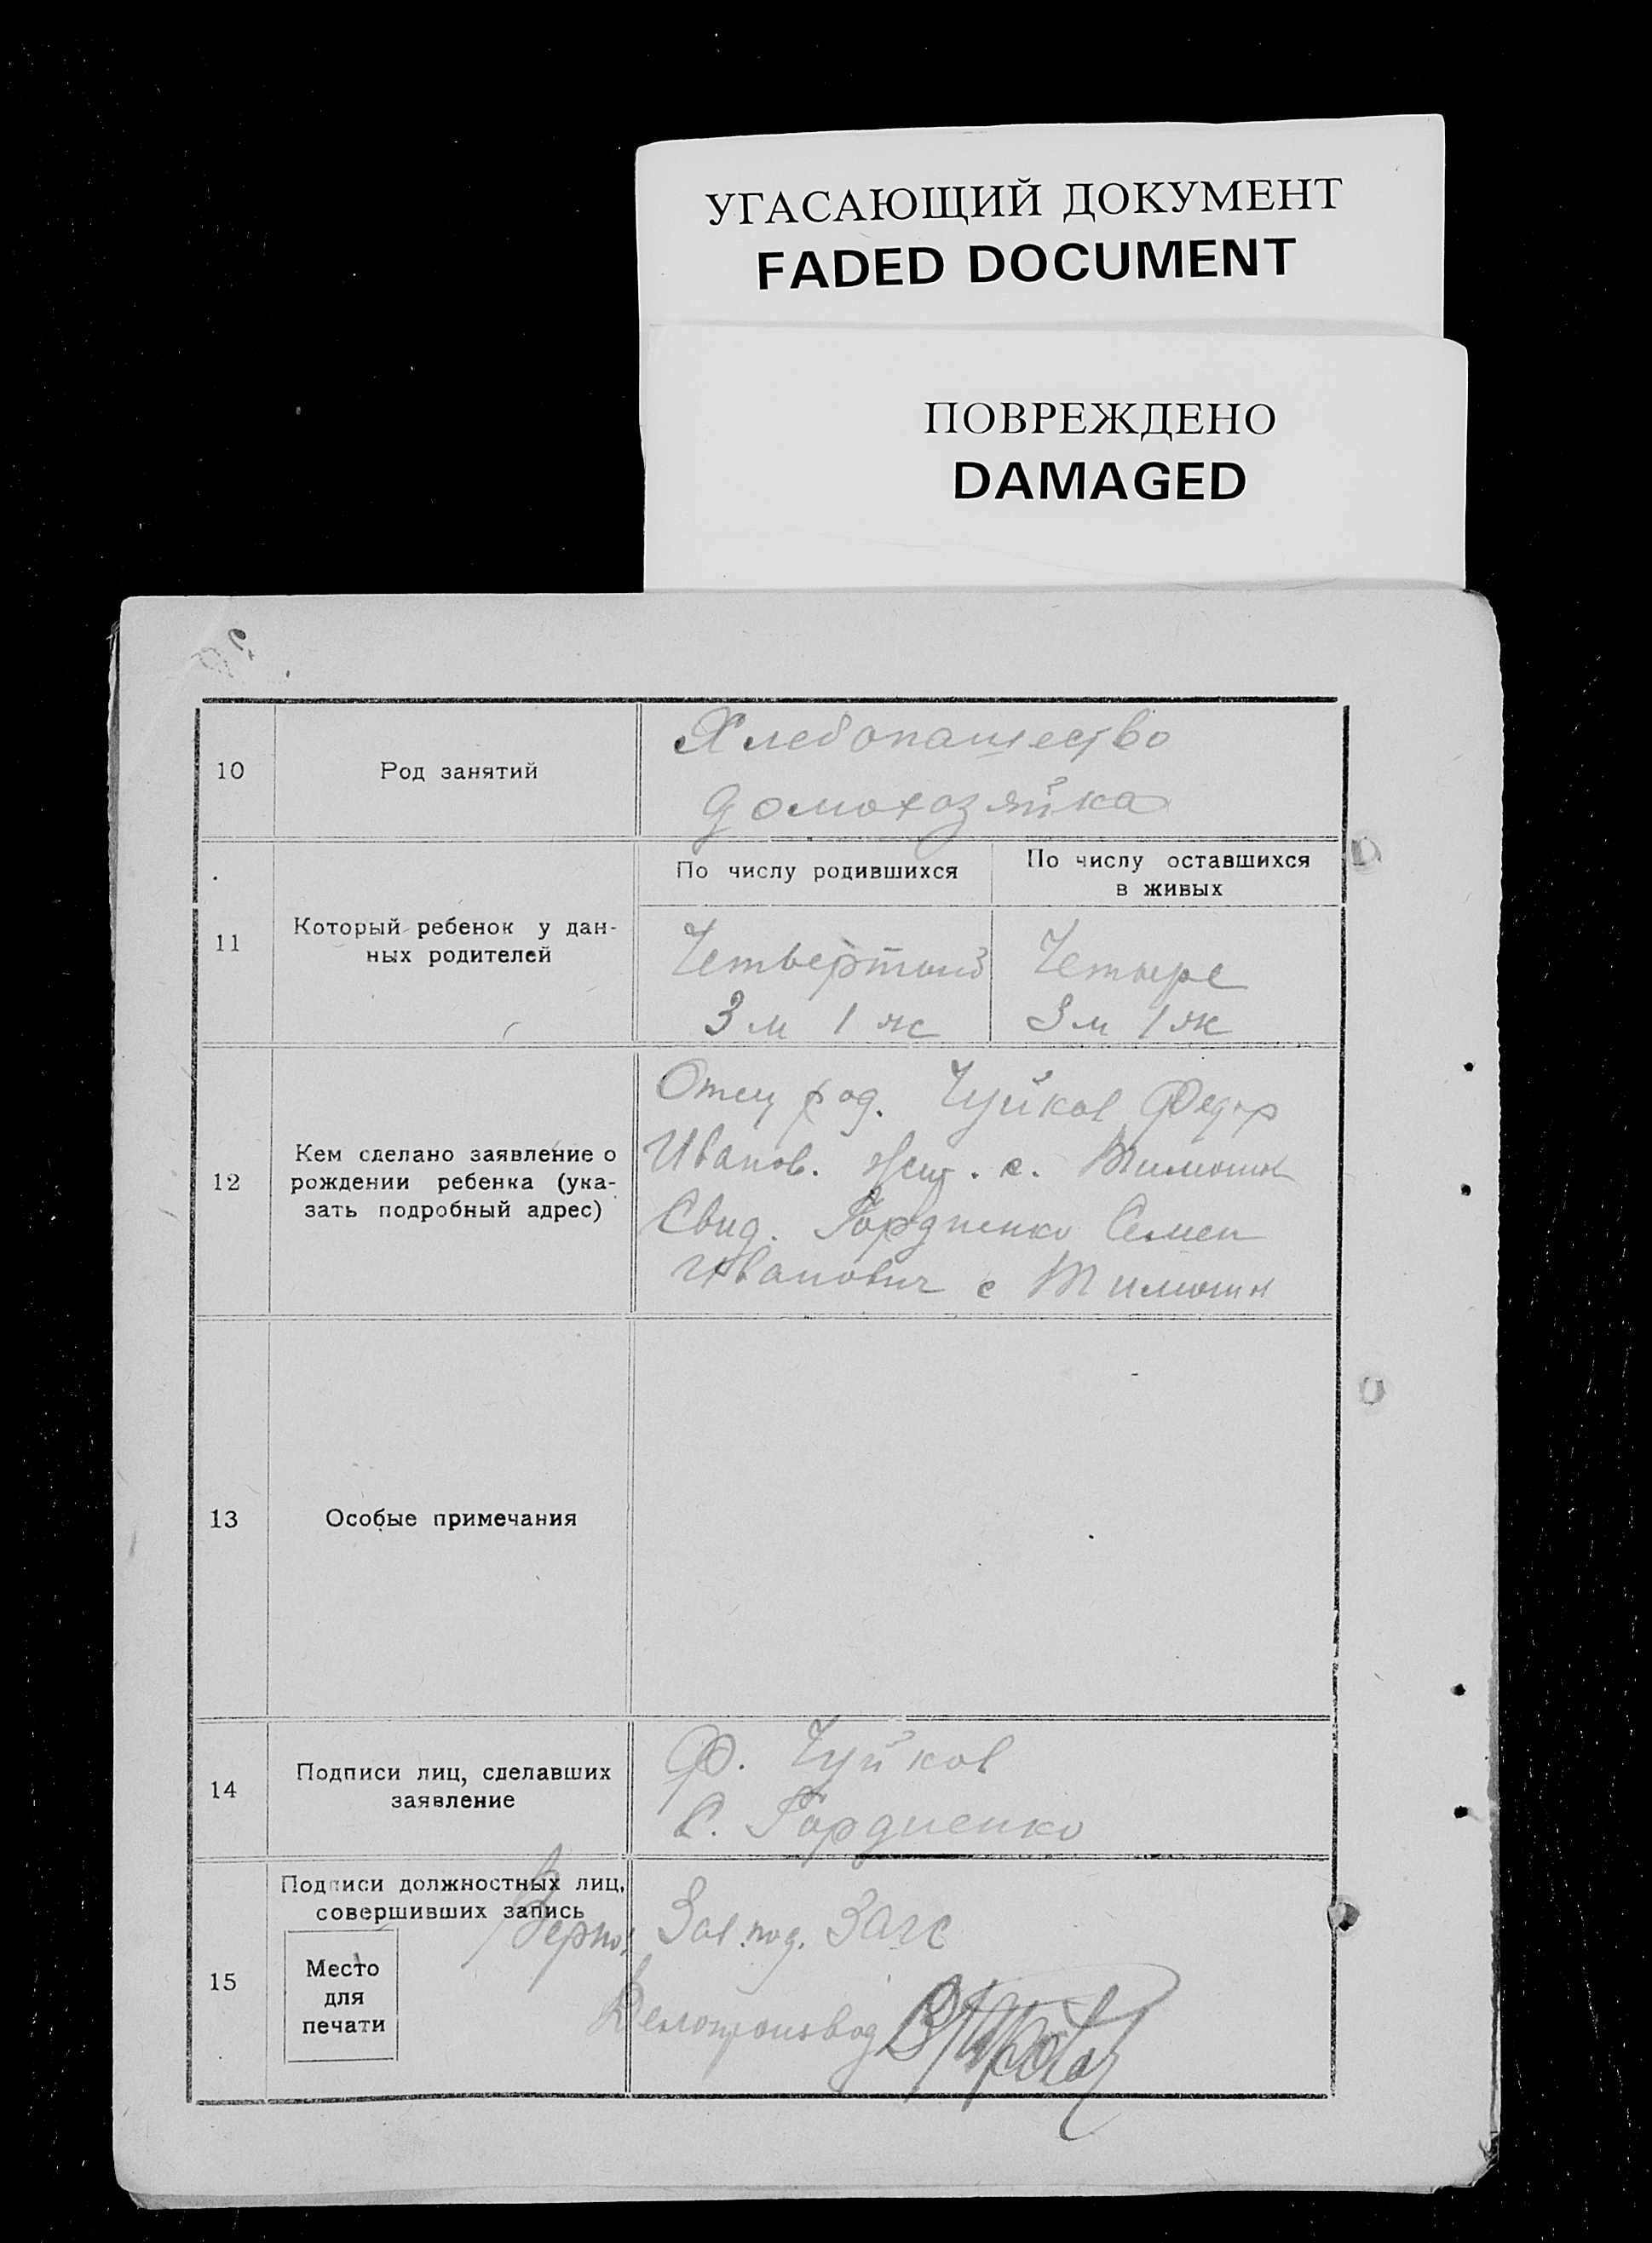 УГАСАЮЩИЙ ДОКУМЕНТ
FADED DOCUMENT
ПОВРЕЖДЕНО
DAMAGED
10
Род занятий
Хлебопашество
домохозяйка
11
Который ребенок у дан-
ных родителей
По числу родившихся
По числу оставшихся
в живых
Четвертый
3 м 1 ж
Четыре
3 м 1 ж
12
Кем сделано заявление о
рождении ребенка (ука-
зать подробный адрес)
Отец род. Чуйков Федор
Иванов. жит. с.
Свид. Гордиенко Семен
Иванович с
13
Особые примечания
14
Подписи лиц, сделавших
заявление
Ф. Чуйков
С. Гордиенко
15
Подписи должностных лиц,
совершивших запись
Место
для
печати
Верно:
Зав. под. Загс
Делопроизвод